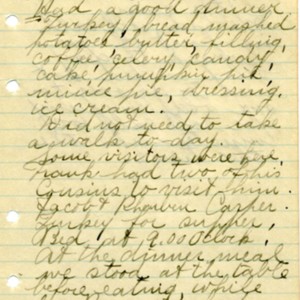 Had a good dinner
Turkey, bread mashed
potatoes, butter, filling,
coffee, celery, candy,
cake, pumpkin pie,
mince pie, dressing,
ice cream.
Did not need to take
a walk to-day.
Some visitors were here,
had two of his
Cousins to visit him.
Jacob & Carper.
Turkey for supper,
Bed at 9.00 O'clock.
At the dinner meal
we stood at the table
before eating, while